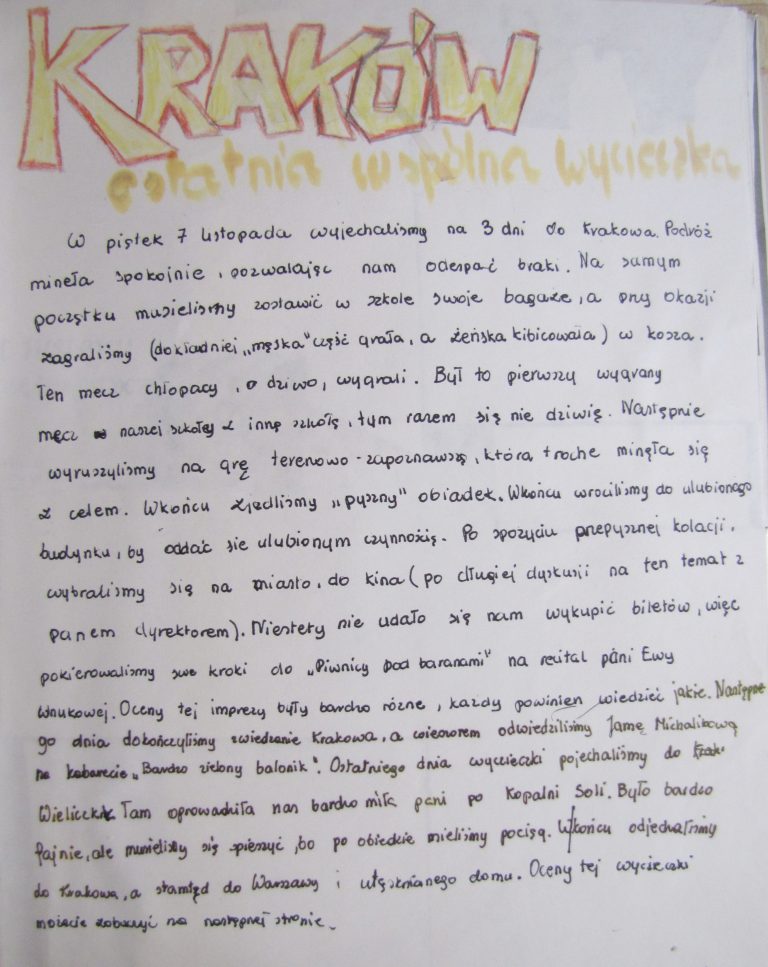 KRAKÓW
ostatnia wspólna wycieczka
W piątek 7 listopada wyjechaliśmy na 3 dni do Krakowa. Podróż
mineła spokojnie, pozwalając nam odespać braki. Na samym
początku musieliśmy zostawić w szkole swoje bagaże, a przy okazji
zagraliśmy (dokładniej „męska" część grała, a żeńska kibicowała) w kosza.
Ten mecz chłopacy, o dziwo, wygrali. Był to pierwszy wygrany
mecz naszej szkoły z inną szkołą, tym razem się nie dziwię. Następnie
wyruszyliśmy na grę terenowo-zapoznawszą, która troche minęła się
z celem. Wkońcu zjedliśmy „pyszny" obiadek. Wkońcu wrociliśmy do ulubionego
budynku, by oddać sie ulubionym czynnością. Po spożyciu przepysznej kolacji,
wybraliśmy się na miasto, do kina (po długiej dyskusji na ten temat z
panem dyrektorem). Niestety nie udało się nam wykupić biletów, więc
pokierowaliśmy swe kroki do „Piwnicy pod baranami" na recital pani Ewy
Wnukowej. Oceny tej imprezy były bardzo różne, każdy powinien wiedzieć jakie. Następne
go dnia dokończyliśmy zwiedzanie Krakowa, a wieczorem odwiedziliśmy Jamę Michalikową
na kabarecie „Bardzo zielony balonik". Ostatniego dnia wycieczki pojechaliśmy do
Wieliczki. Tam oprowadziła nas bardzo miła pani po Kopalni Soli. Było bardzo
fajnie, ale musieliśmy się spieszyć, bo po obiedzie mieliśmy pociąg. Wkońcu odjechaliśmy
do Krakowa, a stamtąd do Warszawy i utęsknianego domu. Oceny tej wycieczki
możecie zobaczyć na następnej stronie.